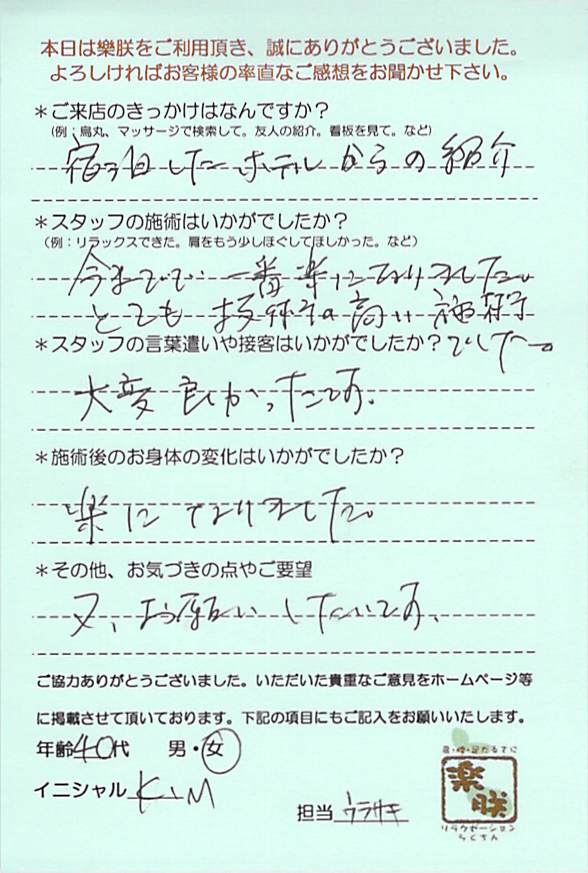 本日は樂朕をご利用頂き、誠にありがとうございました。
よろしければお客様の率直なご感想をお聞かせ下さい。
＊ご来店のきっかけはなんですか？
（例：烏丸、マッサージで検索して。友人の紹介。看板を見て。など）
宿泊したホテルからの紹介
＊スタッフの施術はいかがでしたか？
（例：リラックスできた。肩をもう少しほぐしてほしかった。など）
今までで一番楽になりました。
とても技術の高い施術
＊スタッフの言葉遣いや接客はいかがでしたか？でした。
大変良かったです。
＊施術後のお身体の変化はいかがでしたか？
楽になりました。
＊その他、お気づきの点やご要望
又、お願いしたいです。
ご協力ありがとうございました。いただいた貴重なご意見をホームページ等
に掲載させて頂いております。下記の項目にもご記入をお願いいたします。
年齢40代 男・女
イニシャル K.M
担当 ウラサキ
樂朕
リラクゼーション
らくちん